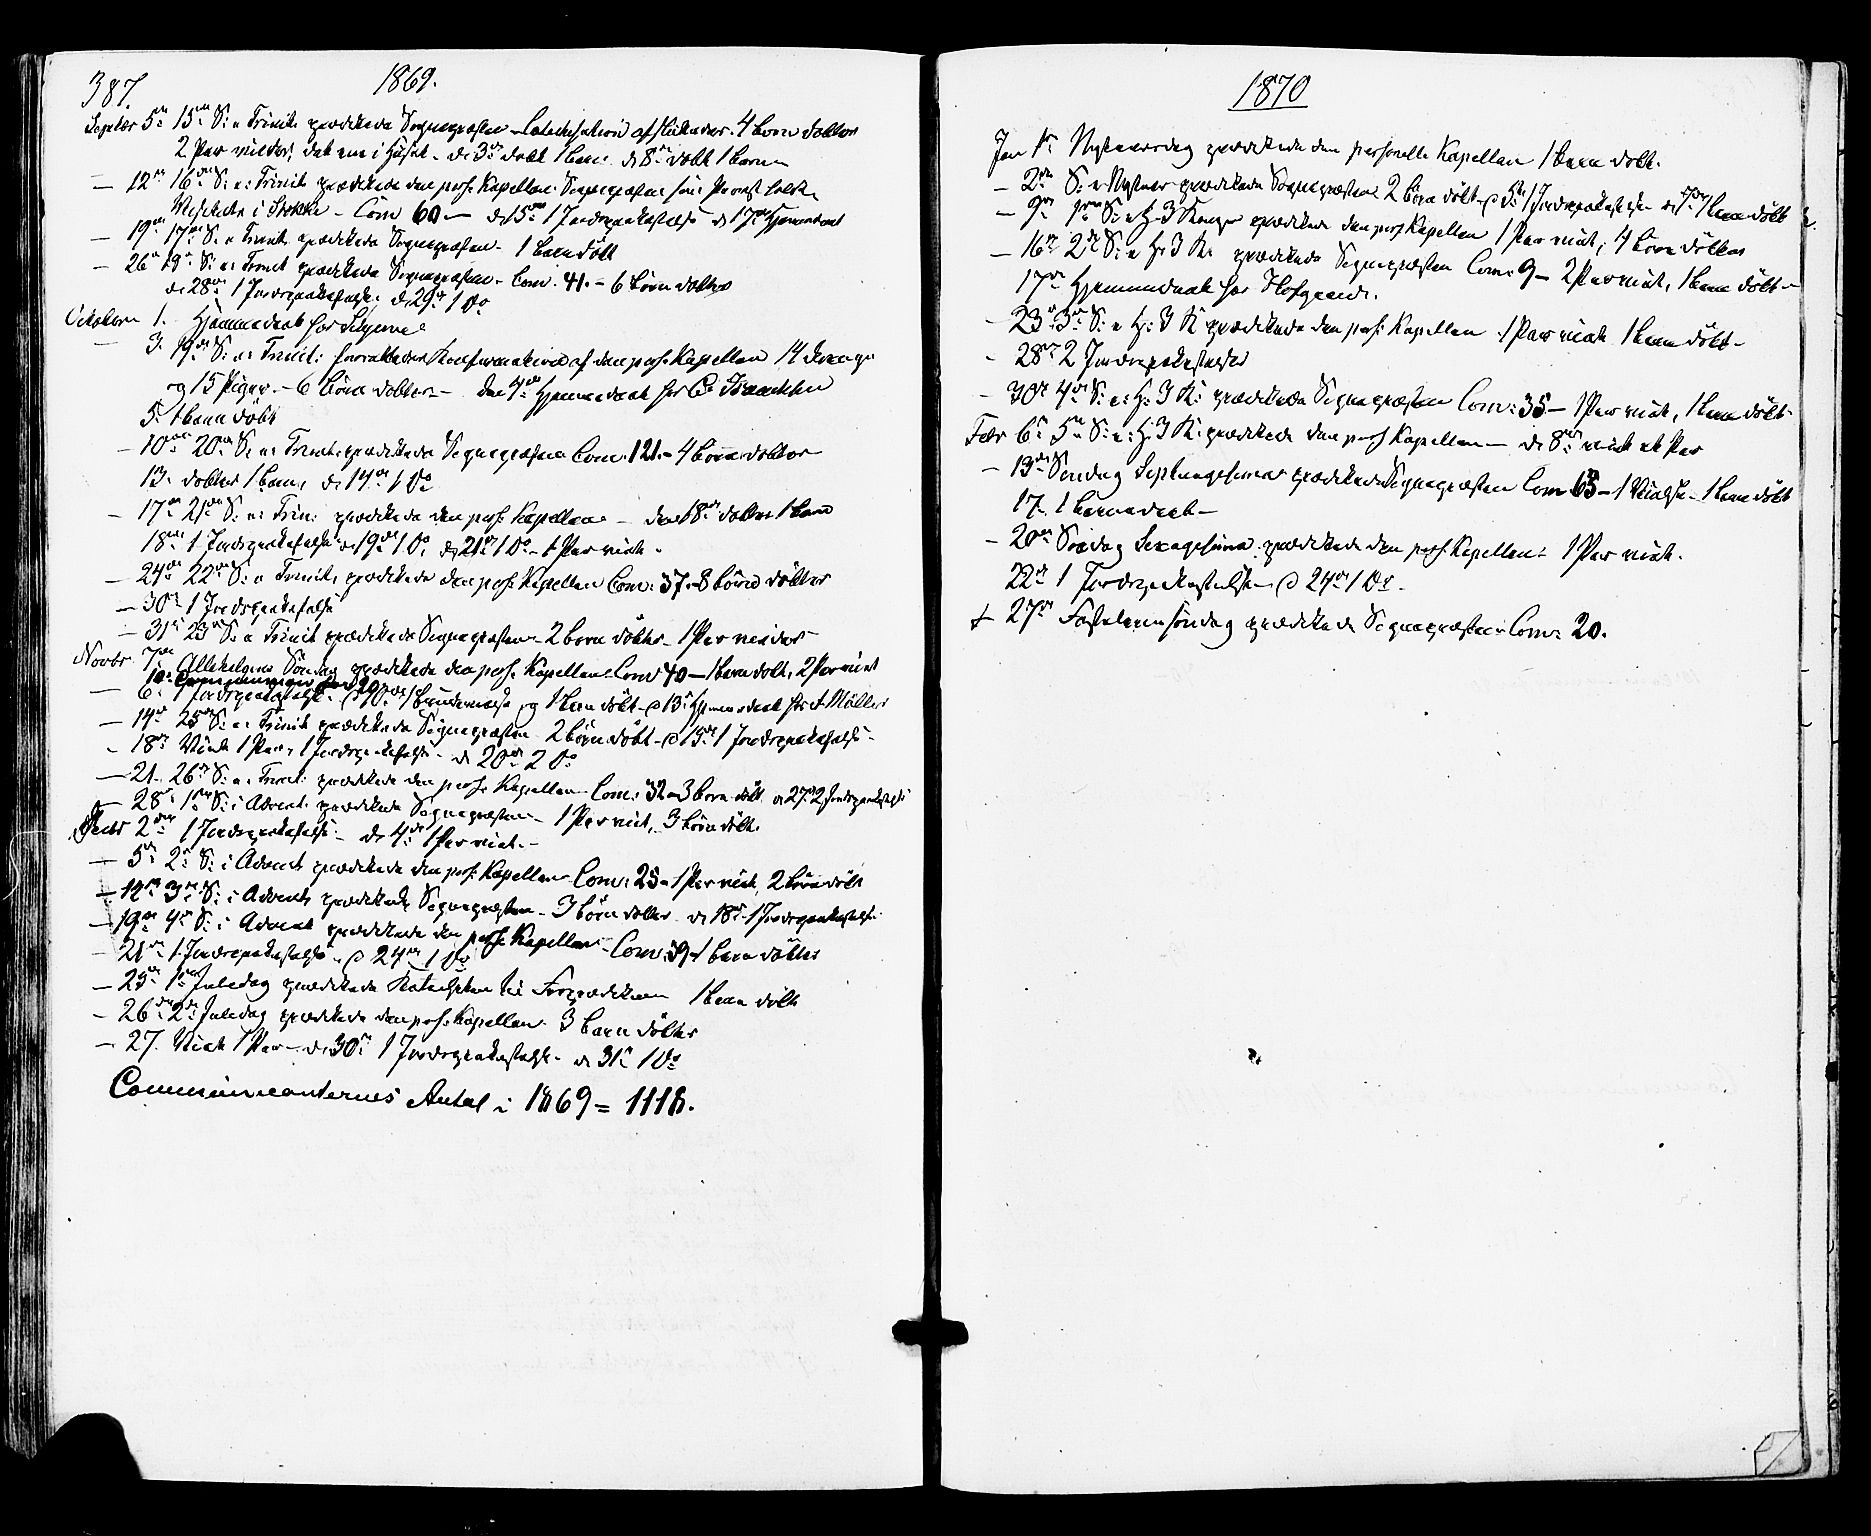 387.
1869.
Septbr 5te 15de S: e Trinit. prædikede Sognepræsten - Catechisation afsluttedes. 4 børn døbtes
2 Par viedes, det ene i Huset - d: 3die døbt 1 barn. d 8de døbt 1 barn
— 12te 16de S: e: Trinit prædikede den pers: Kapellan. Sognepræsten som Provst holdt
Visitats i Stokke - Com 60 — d 15de 1 Jordpaakastelse d 17de Hjemmedaab
— 19de 17de S: e Trinit. prædikede Sognepræsten - 1 barn døbt
— 26de 18de S: e: Trinit prædikede Sognepræsten - Com: 41. - 6 børn døbtes
d: 28de 1 Jordpaakastelse. d, 29de 1 Do
Octobr 1. Hjemmedaab hos
— 3. 19de S: e: Trinit: foretoges Konfirmation af den pers: Kapellan 14 Drenge
og 15 Piger. - 6 børn døbtes - den 4de Hjemmedaab hos
5. 1 barn døbt
— 10de 20de S: e: Trinit. prædikede Sognepræsten Com: 121. - 4 børn døbtes
13. døbtes 1 barn, d: 14de 1 Do
— 17de 21de S: e: Trin: prædikede den pers: Kapellan - den 18de døbtes 1 barn
18de 1 Jordpaakastelse d 19de 1 Do. d 21de 1 Do - 1 Par viet.
— 24de 22de S: e Trinit, prædikede den pers: Kapellan Com: 37. 8 børn døbtes
— 30te 1 Jordpaakastelse
— 31te 23de S: e Trinit prædikede Sognepræsten - 2 børn døbtes - 1 Par viedes
Novbr 7de Allehelgens Søndag prædikede den pers: Kapellan Com 40 — 1 barn døbt, 2 Par viet
— 6. 1 Jordpaakastelse. d 10de 1 og 1 barn døbt - d 13de Hjemmedaab hos A Møller
— 14de 25de S: e: Trinit prædikede Sognepræsten 2 børn døbt - d 15de 1 Jordpaakastelse -
- 18de Viede 1 Par, 1 Jordpaakastelse - d 20de 2 Do
— 21. 26de S: e: Trinit: prædikede den pers: Kapellan - Com: 32 - 3 børn døbt d 27de 2 Jordpaakastelse
— 28. 1ste S: i Advent: prædikede Sognepræsten - 1 Par viet, - 3 børn døbt.
Decbr 2den 1 Jordpaakastelse - d 4de 1 Par viet. -
— 5te 2den S: i Advent prædikede den pers: Kapellan Com: 25 - 1 Par viet, 2 børn døbt
— 12te 3die S: i Advent, prædikede Sognepræsten - 3 børn døbtes - d 18de 1 Jordpaakastelse
— 19de 4de S: i Advent prædikede den pers: Kapellan - Com: 39 1 barn døbtes
— 21de 1 Jordpaakastelse - d 24de 1 Do
— 25de 1ste Juledag prædikede Kateketen til Froprædiken 1 barn døbt
- 26de 2den Juledag prædikede den pers: Kapellan - 3 barn døbtes
— 27. Viede 1 Par - d 30te 1 Jordpaakastelse - d 31te 1 Do
Communicanternes Antal i 1869 = 1118.
1870
Jan 1ste Nytaarsdag prædikede den personelle Kapellan 1 barn døbt.
— 2den S: e Nytaar prædikede Sognepræsten 2 børn døbt - d 5te 1 Jordpaakastelse d 7de 1 barn døbt
— 9de 1ste S: e H: 3 Konger prædikede den pers Kapellan 1 Par viet, 4 børn døbtes
— 16de 2den S: e H: 3 K: prædikede Sognepræsten Com: 9 — 2 Par viet, 1 barn døbt -
17de Hjemmedaab hos
— 23de 3die S: e H: 3 K prædikede den pers: Kapellan - 1 Par viet 1 barn døbt -
- 28de 2 Jordpaakastelser
— 30te 4de S: e: H: 3 K: prædikede Sognepræsten Com: 35 — 1 Par viet, 1 barn døbt -
Febr 6te 5te S: e: H: 3 K: prædikede den pers Kapellan — d 8de viet et Par
— 13de Søndag Septuagesima prædikede Sognepræsten Com 63 - 1 Vielse - 1 barn døbt
17. 1 barnedaab —
— 20de Søndag Sexagesima prædikede den pers: Kapellan - 1 Par viet.
22de 1 Jordpaakastelse — d 24de 1 Do.
27de Fastelavnssøndag prædikede Sognepræsten Com: 20.